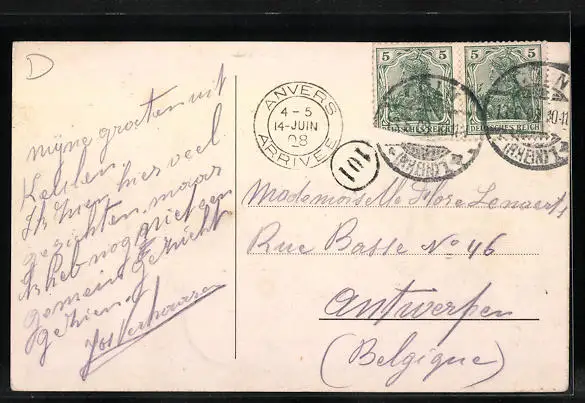 D
mijne groeten uit
Keulen.
Ik zien hier veel
gezichten, maar
Ik heb nog niet een
gemeind gezicht
gezien.
Jos Verhouven
ANVERS
4-5
14-JUIN
08
ARRIVÉE
101
5 5
5 5
DEUTSCHES REICH
DEUTSCHES REICH
(RHEIN)
(RHEIN)1
Mademoiselle Flore Lenaerts
Rue Basse No 46
Antwerpen
(Belgique)